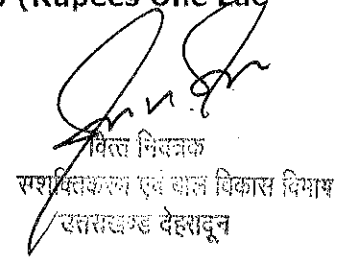 (Rupees One Lac
वित्त नियंत्रक
सशक्तिकरण एवं बाल विकास विभाग
उत्तराखण्ड देहरादून